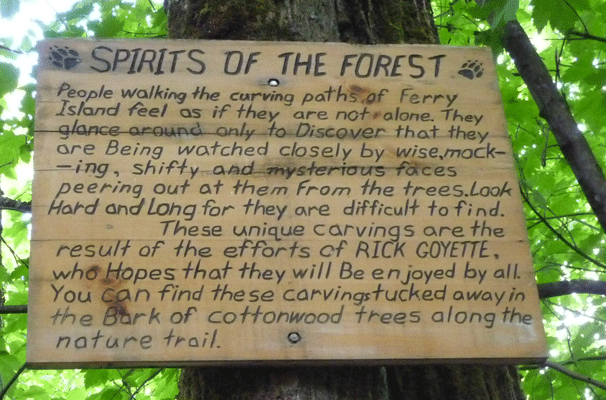 SPIRITS OF THE FOREST
People walking the curving paths of Ferry
Island feel as if they are not alone. They
glance around only to Discover that they
are Being watched closely by wise, mock-
-ing, shifty and mysterious faces
peering out at them From the trees. Look
Hard and Long for they are difficult to find.
These unique carvings are the
result of the efforts of RICK GOYETTE,
who Hopes that they will Be enjoyed by all.
You can find these carvings tucked away in
the Bark of cottonwood trees along the
nature trail.